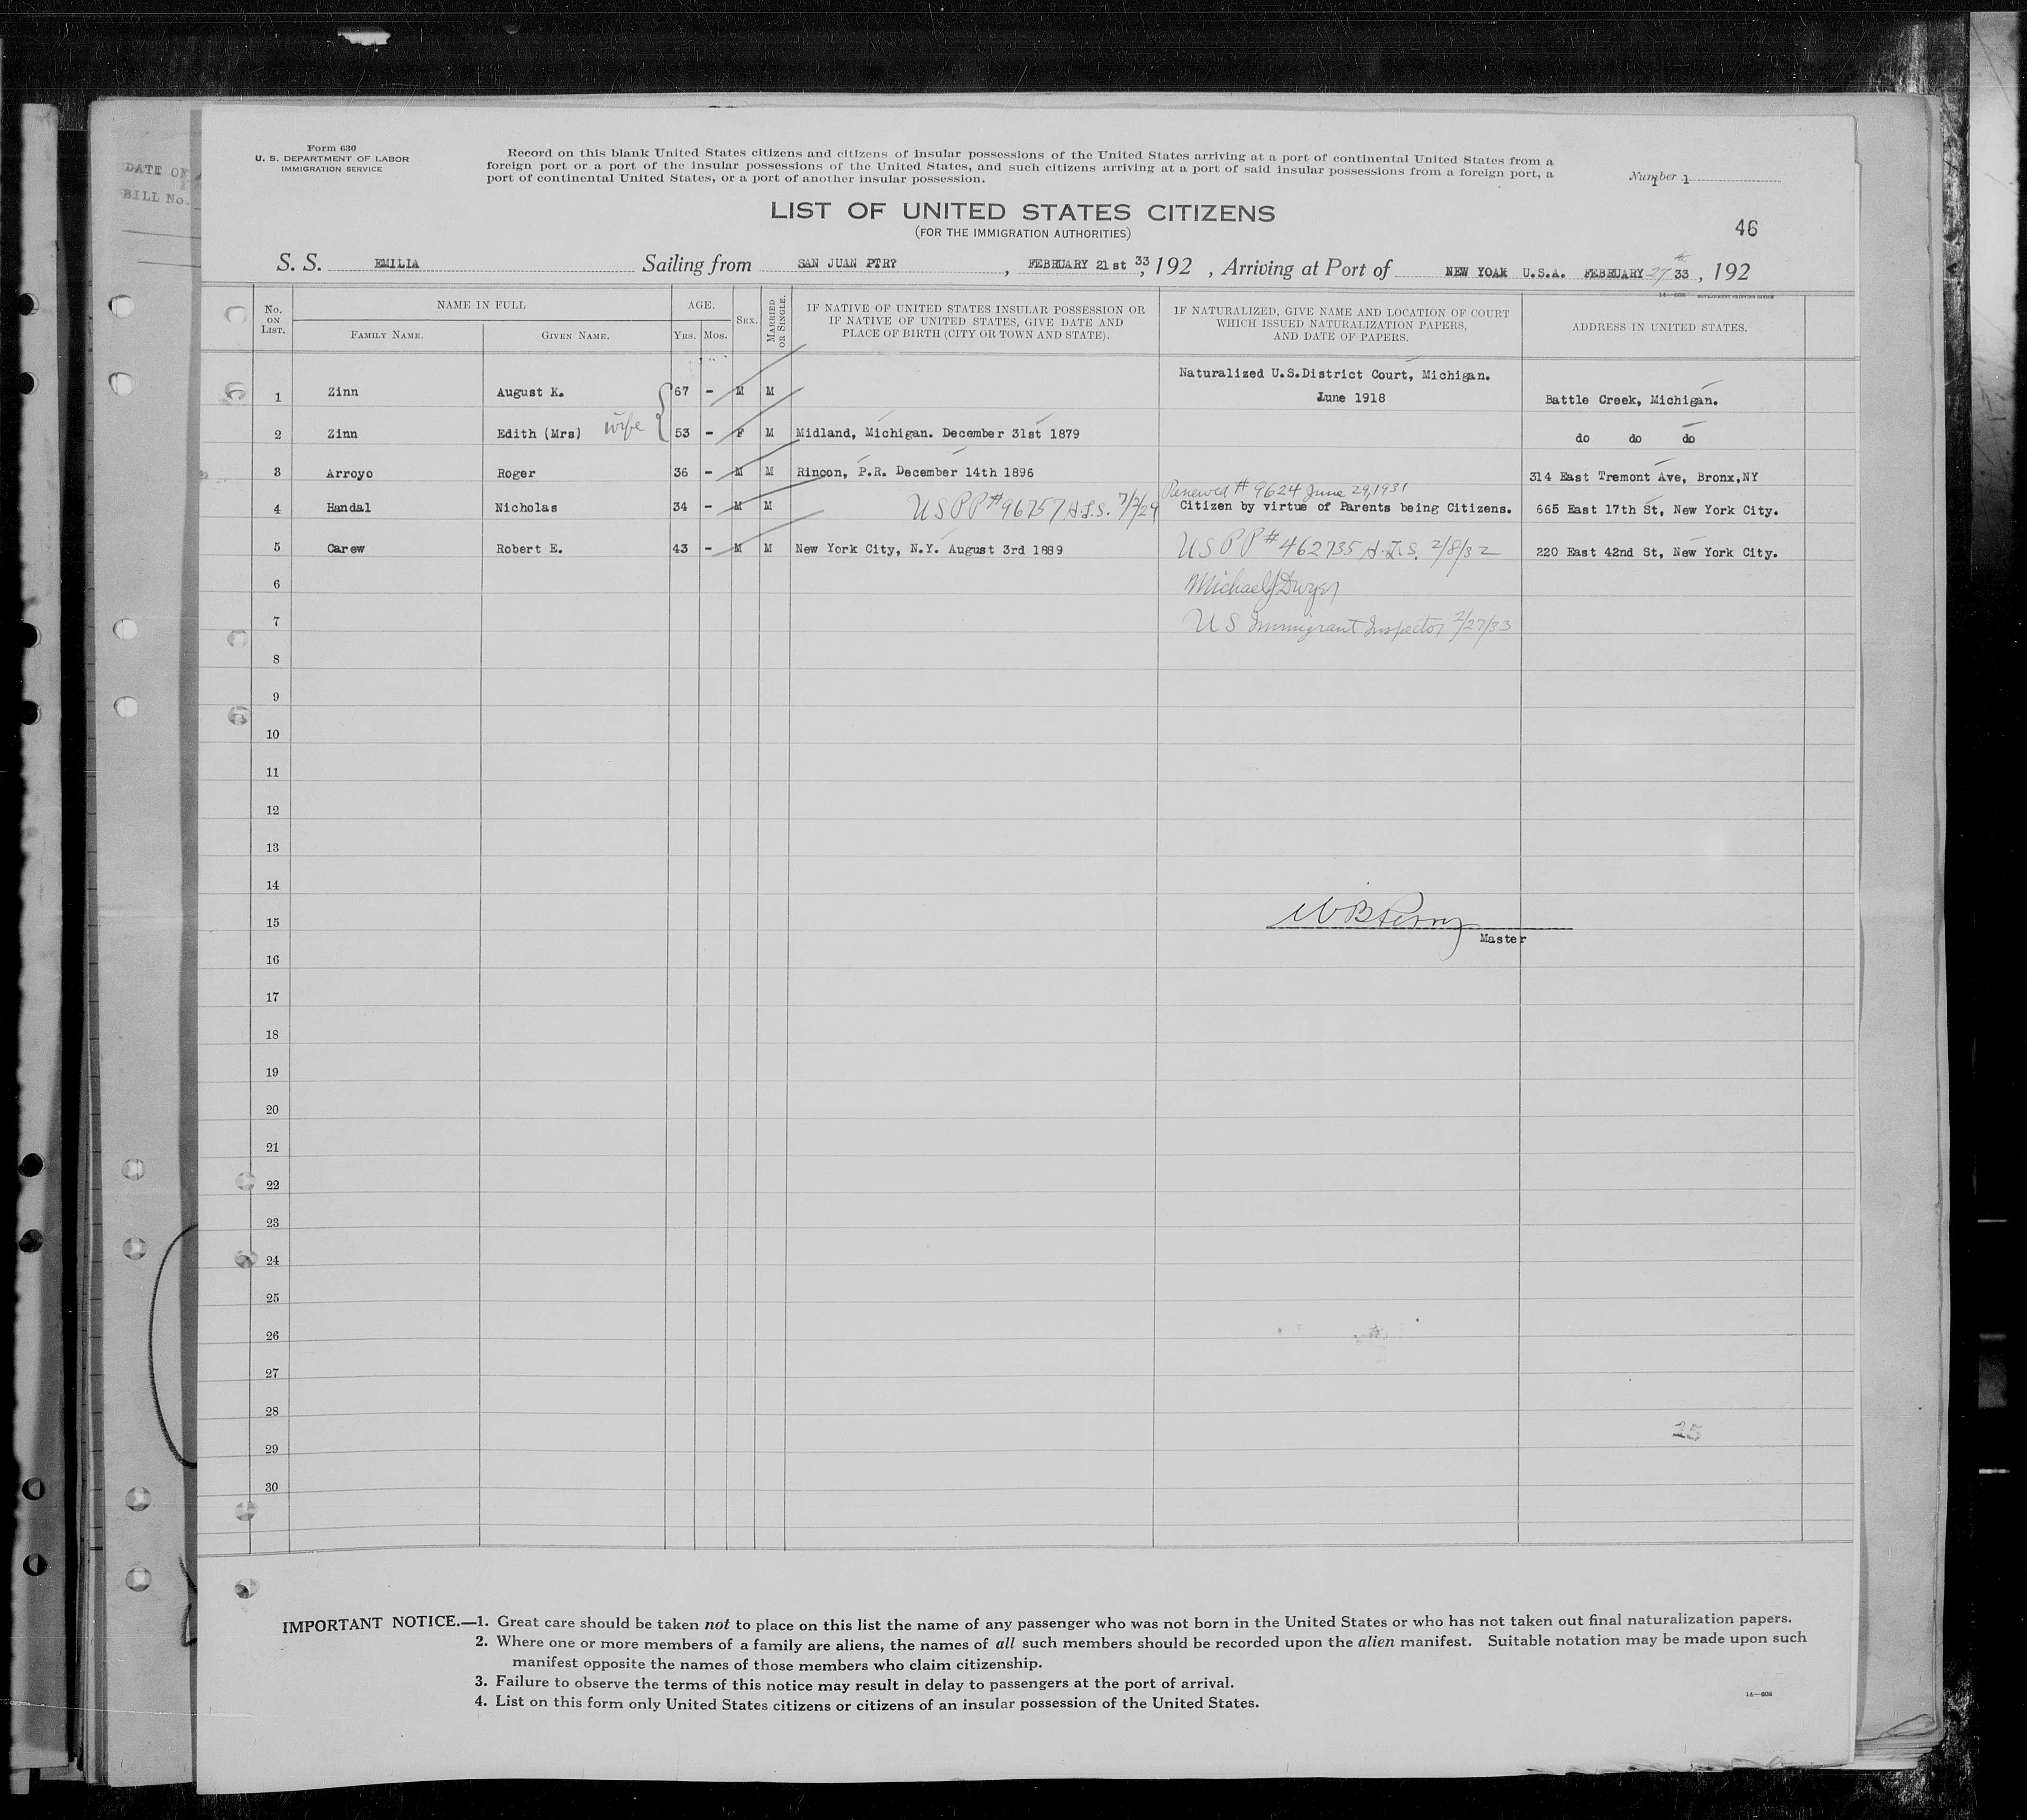 DATE OF
BILL No.
Form 630
U. S. DEPARTMENT OF LABOR
IMMIGRATION SERVICE
Record on this blank United States citizens and citizens of insular possessions of the United States arriving at a port of continental United States from a
foreign port or a port of the insular possessions of the United States, and such citizens arriving at a port of said insular possessions from a foreign port, a
port of continental United States, or a port of another insular possession.
Number 1
LIST OF UNITED STATES CITIZENS
(FOR THE IMMIGRATION AUTHORITIES)
46
S. S. EMILIA Sailing from SAN JUAN PTR? , FEBRUARY 21st 33, 192 , Arriving at Port of NEW YOAK U.S.A. FEBRUARY 27 33 , 192
No. ON LIST.
NAME IN FULL
FAMILY NAME.
GIVEN NAME.
AGE.
YRS. MOS.
SEX.
MARRIED OR SINGLE.
IF NATIVE OF UNITED STATES INSULAR POSSESSION OR
IF NATIVE OF UNITED STATES, GIVE DATE AND
PLACE OF BIRTH (CITY OR TOWN AND STATE).
IF NATURALIZED, GIVE NAME AND LOCATION OF COURT
WHICH ISSUED NATURALIZATION PAPERS,
AND DATE OF PAPERS.
14—608 GOVERNMENT PRINTING OFFICE
ADDRESS IN UNITED STATES.
Naturalized U.S.District Court, Michigan.
1 Zinn August K. 67 - M M June 1918 Battle Creek, Michigan.
2 Zinn Edith (Mrs) wife 53 - F M Midland, Michigan. December 31st 1879 do do do
3 Arroyo Roger 36 - M M Rincon, P.R. December 14th 1896 314 East Tremont Ave, Bronx,NY
Renewed # 9624 June 29, 1931
4 Handal Nicholas 34 - M M USPP #96757 H.I.S. 7/2/29 Citizen by virtue of Parents being Citizens. 665 East 17th St, New York City.
5 Carew Robert E. 43 - M M New York City, N.Y. August 3rd 1889 USPP #462735 H.I.S. 2/8/32 220 East 42nd St, New York City.
6 Michael J Dwyer
7 US Immigrant Inspector 2/27/33
8
9
10
11
12
13
14
15 Perry
Master
16
17
18
19
20
21
22
23
24
25
26
27
28
25
29
30
IMPORTANT NOTICE.—1. Great care should be taken not to place on this list the name of any passenger who was not born in the United States or who has not taken out final naturalization papers.
2. Where one or more members of a family are aliens, the names of all such members should be recorded upon the alien manifest. Suitable notation may be made upon such
manifest opposite the names of those members who claim citizenship.
3. Failure to observe the terms of this notice may result in delay to passengers at the port of arrival.
4. List on this form only United States citizens or citizens of an insular possession of the United States.
14—608